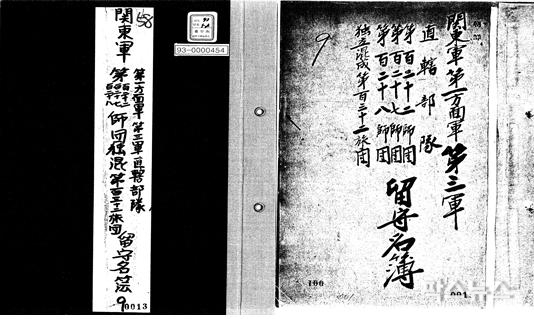 関東軍第一方面軍第三軍
直轄部隊
第百二十二師団
第百二十七師団
第百二十八師団
独立混成第百三十二旅団
留守名簿
9
100
001
58
関東軍
第一方面軍第三軍直轄部隊
師団独混第百三十二旅団
留守名簿
9
0013
93-0000454